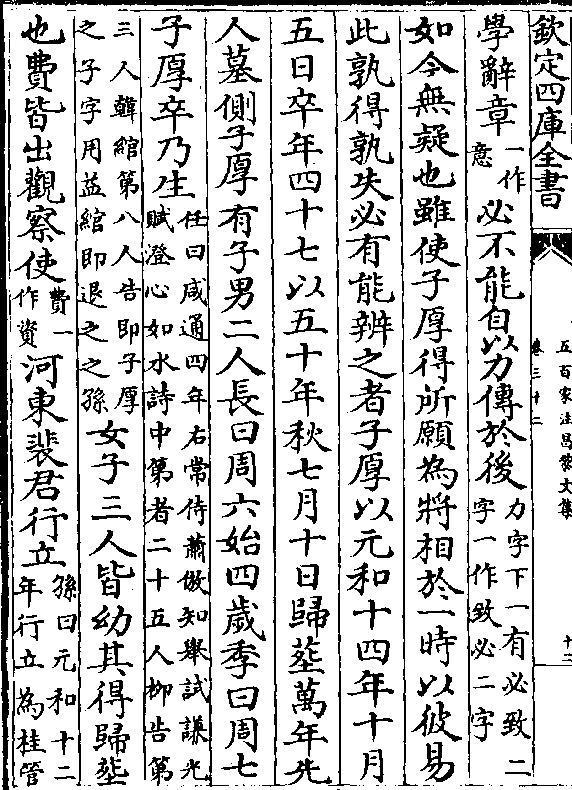 欽定四庫全書
五百家注昌黎文集
卷三十二
十二
學辭章一作意必不能自以力傳於後力字下一有必致二字一作致必二字
如今無疑也雖使子厚得所願為將相於一時以彼易
此孰得孰失必有能辨之者子厚以元和十四年十月
五日卒年四十七以五十年秋七月十日歸塟萬年先
人墓側子厚有子男二人長曰周六始四歲季曰周七
子厚卒乃生任曰咸通四年右常侍蕭倣知舉試謙光賦澄心如水詩中第者二十五人柳告第
三人韓綰第八人告即子厚之子字用益綰即退之之孫女子三人皆幼其得歸塟
也費皆出觀察使費一作資河東裴君行立孫曰元和十二年行立為桂管